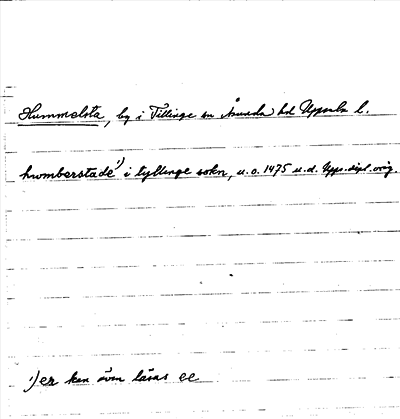 Hummelsta, by i Tillinge sn Åsunda hd Uppsala l.
humberstade¹) i tyllinge sokn, u.o. 1475 u.d. Upps. dipl. orig.
¹) er kan även läsas ee